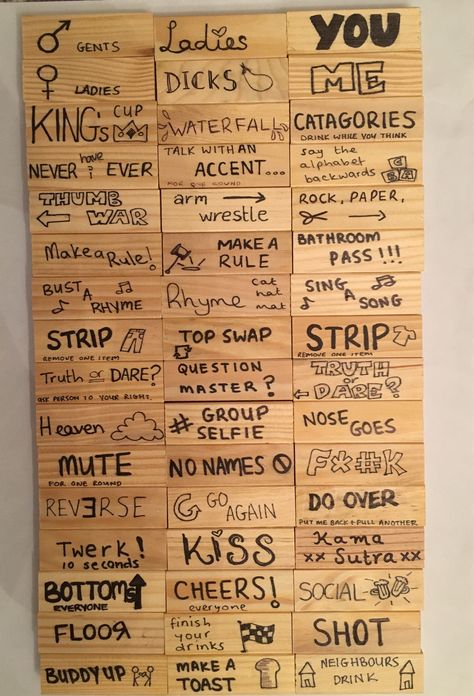 GENTS
Ladies
YOU
LADIES
DICKS
ME
KING's CUP
WATERFALL
CATAGORIES
DRINK WHILE YOU THINK
NEVER have i EVER
TALK WITH AN
ACCENT...
FOR ONE ROUND
say the
alphabet
backwards
C
B A
THUMB
WAR
arm
wrestle
ROCK, PAPER,
Make a Rule!
MAKE A
RULE
BATHROOM
PASS!!!
BUST
A
RHYME
Rhyme
cat
hat
mat
SING
A
SONG
STRIP
REMOVE ONE ITEM
TOP SWAP
STRIP
REMOVE ONE ITEM
Truth or DARE?
ASK PERSON TO YOUR RIGHT.
QUESTION
MASTER?
TRUTH
or
DARE?
Heaven
# GROUP
SELFIE
NOSE
GOES
MUTE
FOR ONE ROUND
NO NAMES
F*#K
REVERSE
GO
AGAIN
DO OVER
PUT ME BACK + PULL ANOTHER
Twerk!
10 seconds
KiSS
Kama
xx Sutra xx
BOTTOMS
EVERYONE
CHEERS!
everyone
SOCIAL-
FLOOR
finish
your
drinks
SHOT
BUDDY UP
MAKE A
TOAST
NEIGHBOURS
DRINK